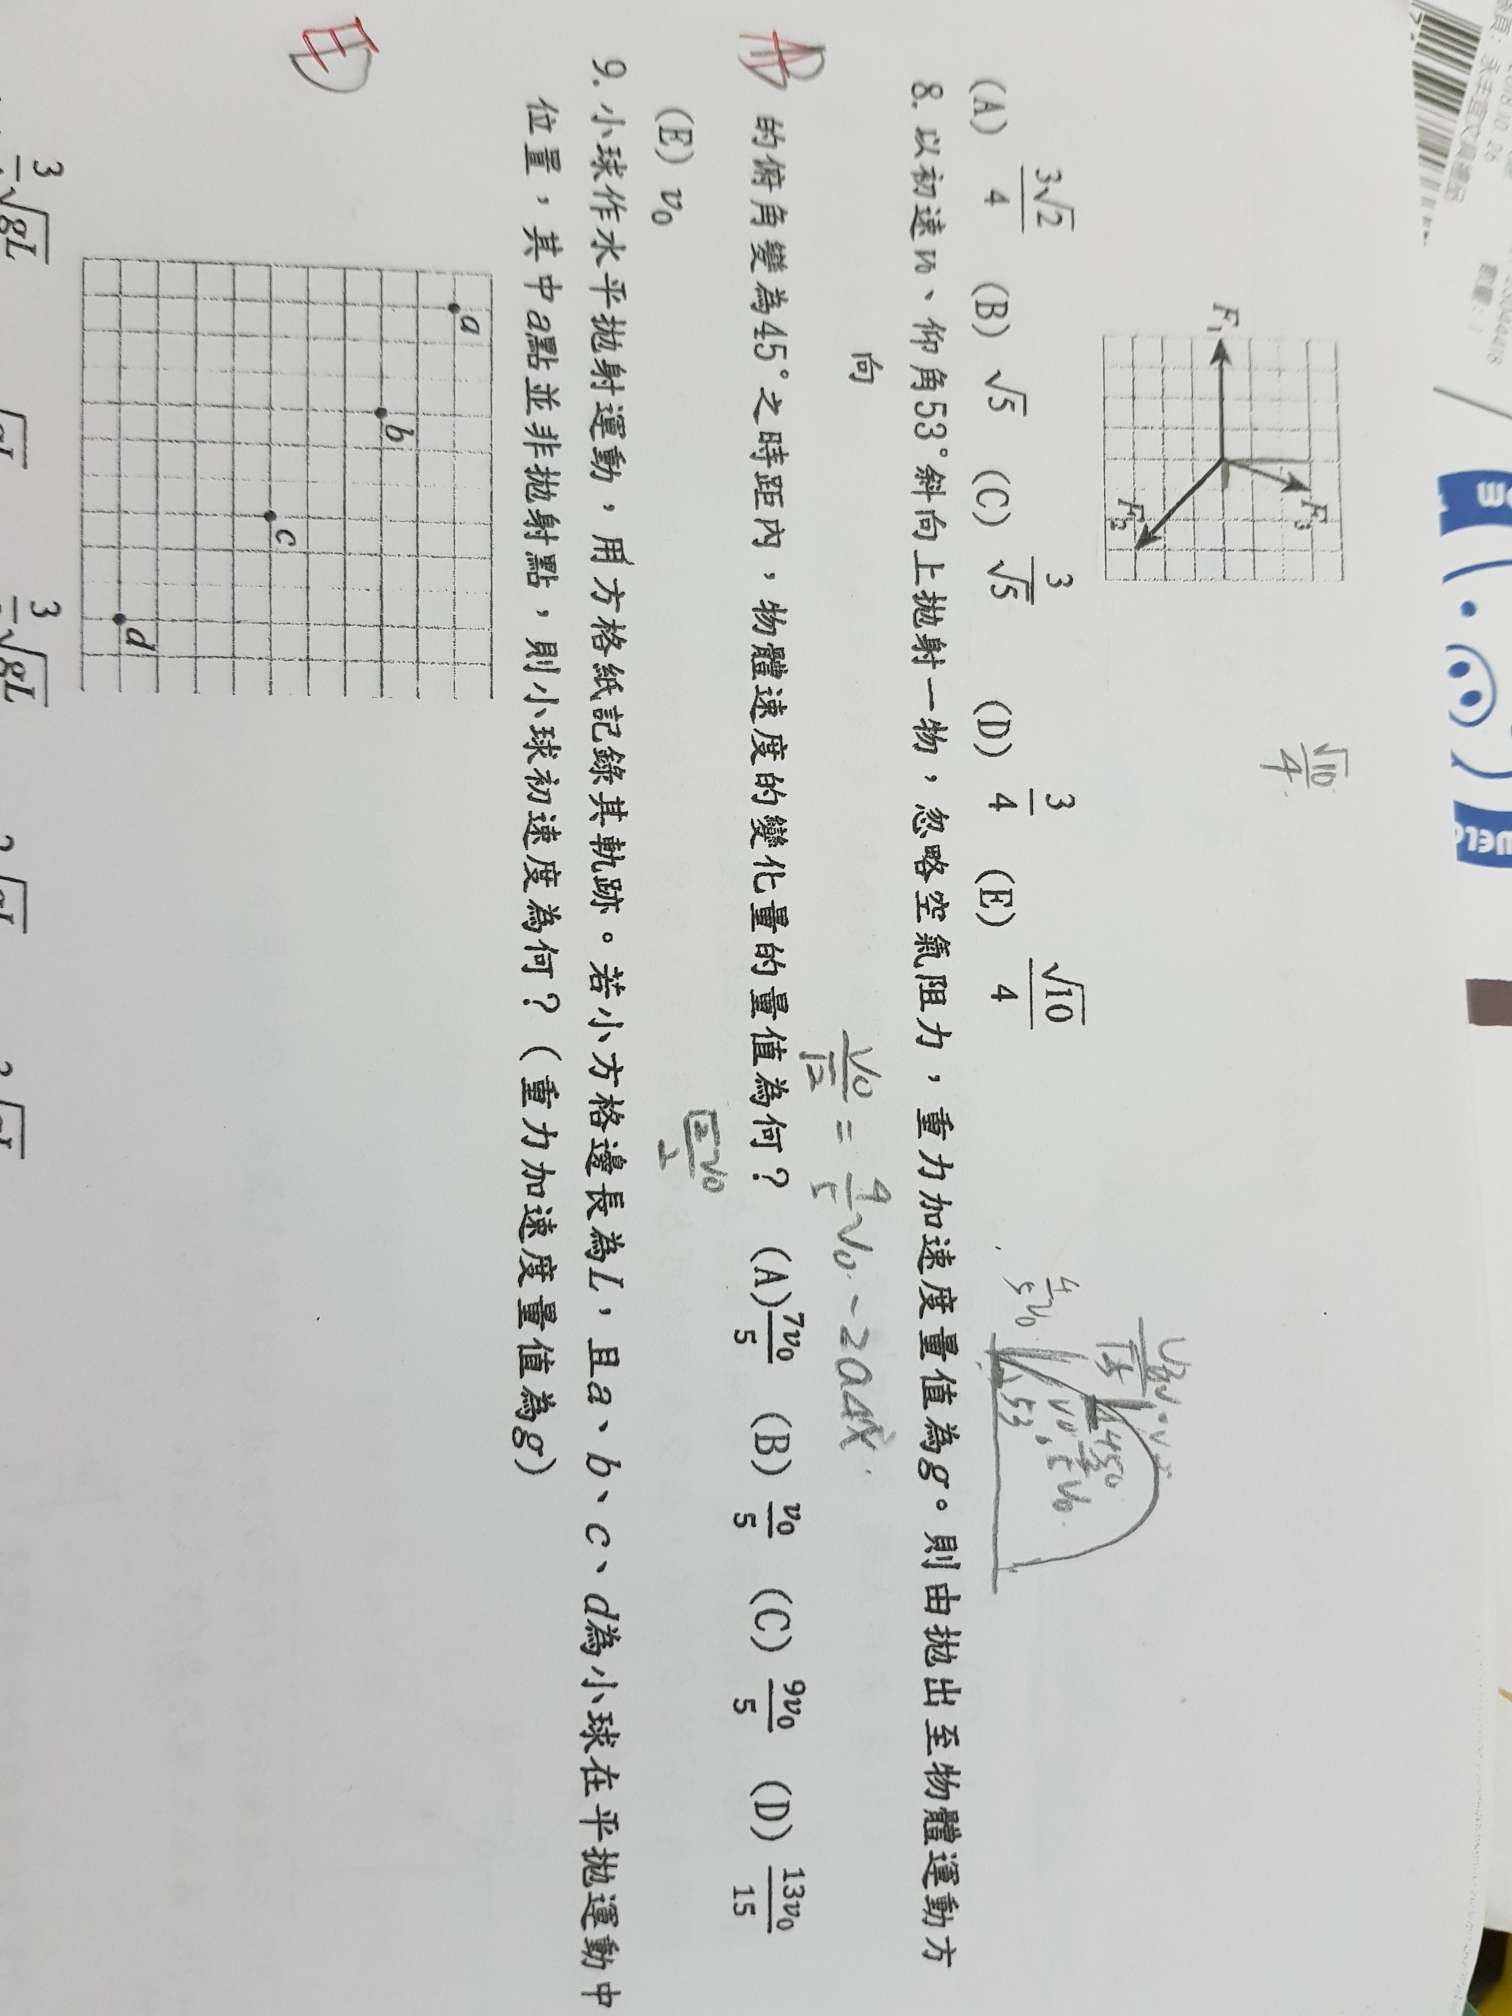 F₁
F₂
F₃
√10/4
(A) 3√2/4 (B) √5 (C) 3/√5 (D) 3/4 (E) √10/4
8. 以初速v₀、仰角53°斜向上拋射一物，忽略空氣阻力，重力加速度量值為g。則由拋出至物體運動方
向
的俯角變為45°之時距內，物體速度的變化量的量值為何？ (A) 7v₀/5 (B) v₀/5 (C) 9v₀/5 (D) 13v₀/15
(E) v₀
4/5 v₀
53
45°
v₀/√2 = 4/5 v₀ - 2a△x
√2v₀/2
9. 小球作水平拋射運動，用方格紙記錄其軌跡。若小方格邊長為L，且a、b、c、d為小球在平拋運動中
位置，其中a點並非拋射點，則小球初速度為何？（重力加速度量值為g）
E
a
b
c
d